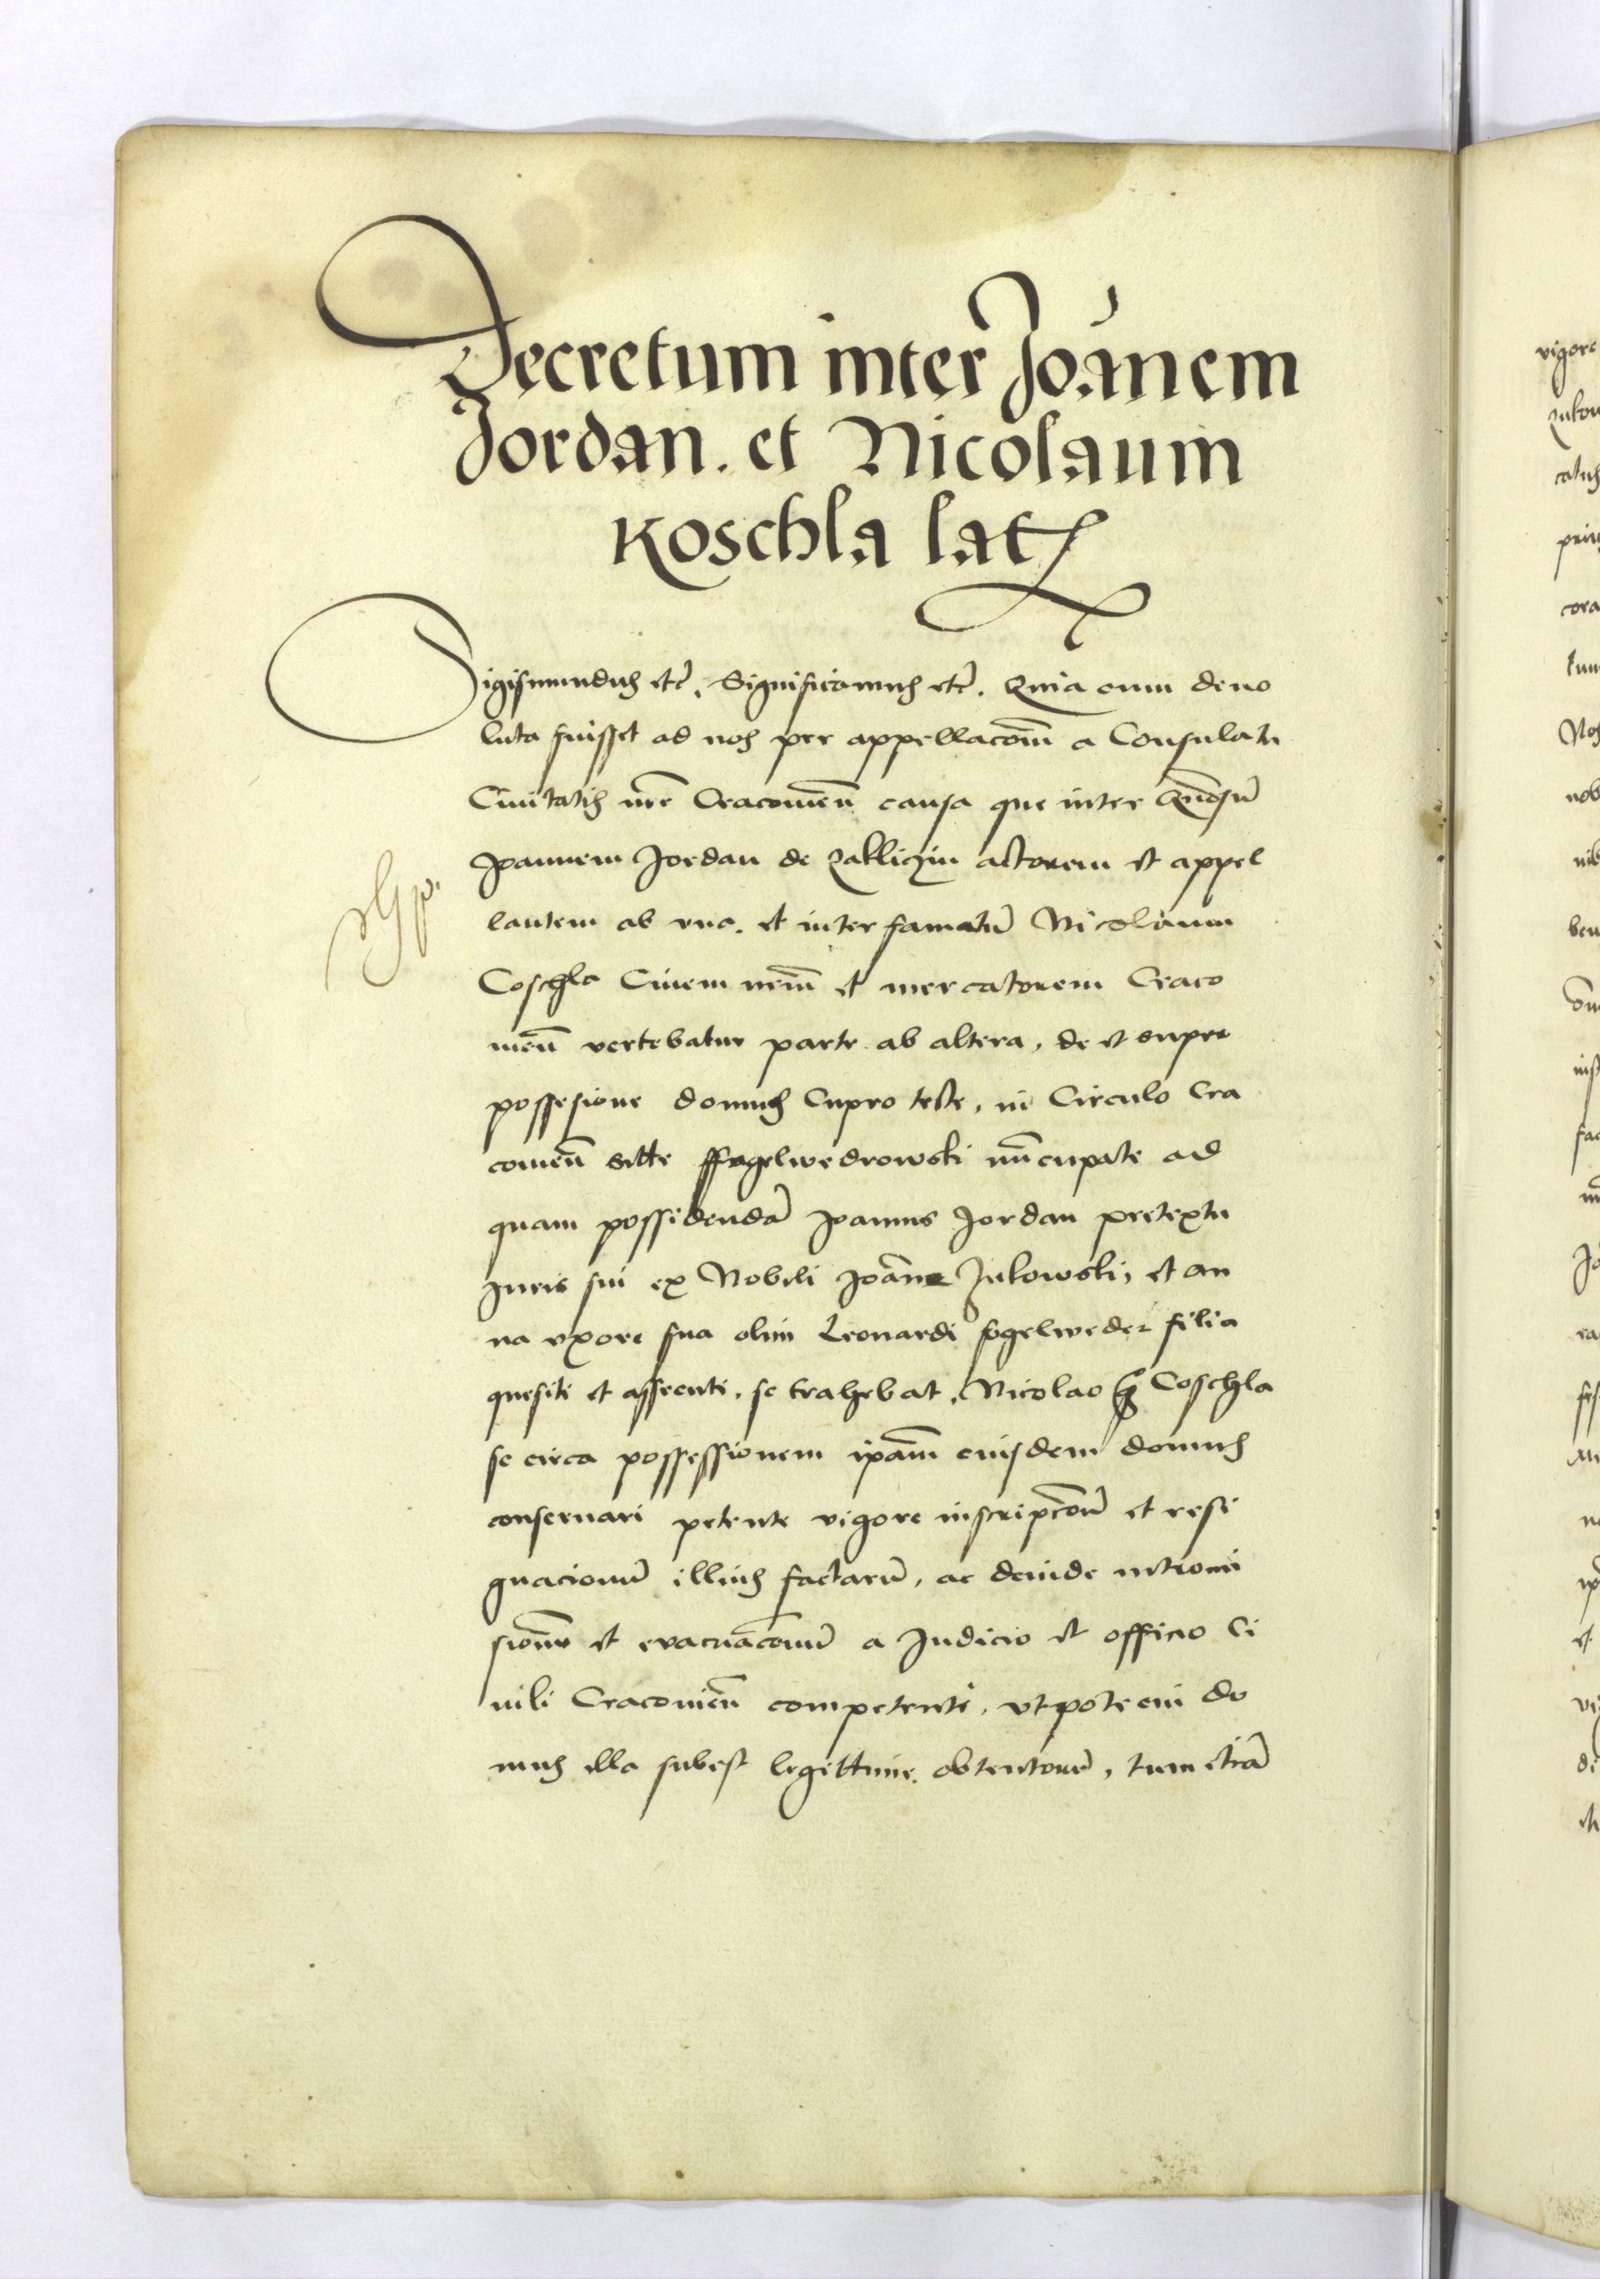 Decretum inter Joānem
Jordan. et Nicolaum
Koschla latꝭ
Sigismundus etc̄. Significamus etc̄. Quia cum deuo
luta fuisset ad nos per appellacōm̄ a Consulatu
Ciuitatis nr̄e Cracouien̄ causa que inter Gn̄osū
Joannem Jordan de Zaklicʒin actorem et appel
lantem ab vna. et inter famatū Nicolaum
Coschla Ciuem nr̄m̄ et mercatorem Craco
uien̄ vertebatur parte ab altera, de et super
possesione domus Cupro tecte, in Circulo Cra
couien̄ sitte ffogelwedrowski nūcupate ad
quam possidendā Joannes Jordan pretextu
Juris sui ex Nobili Joāne Zukowski, et an
na vxore sua olim Leonardi fogelweder filia
quesiti et assecuti, se trahebat, Nicolao Coschla
se circa possessionem ip̄am̄ eiusdem domus
conseruari petente vigore inscripcōnū et resi
gnacionū illius factarū, ac deinde intromi
sionū et evacuacōnū a Judicio et officio Ci
uili Cracouien̄ competenti, vt pote cui do
mus illa subest legittime obtentarū, tum etiā
vigore
catus
cora